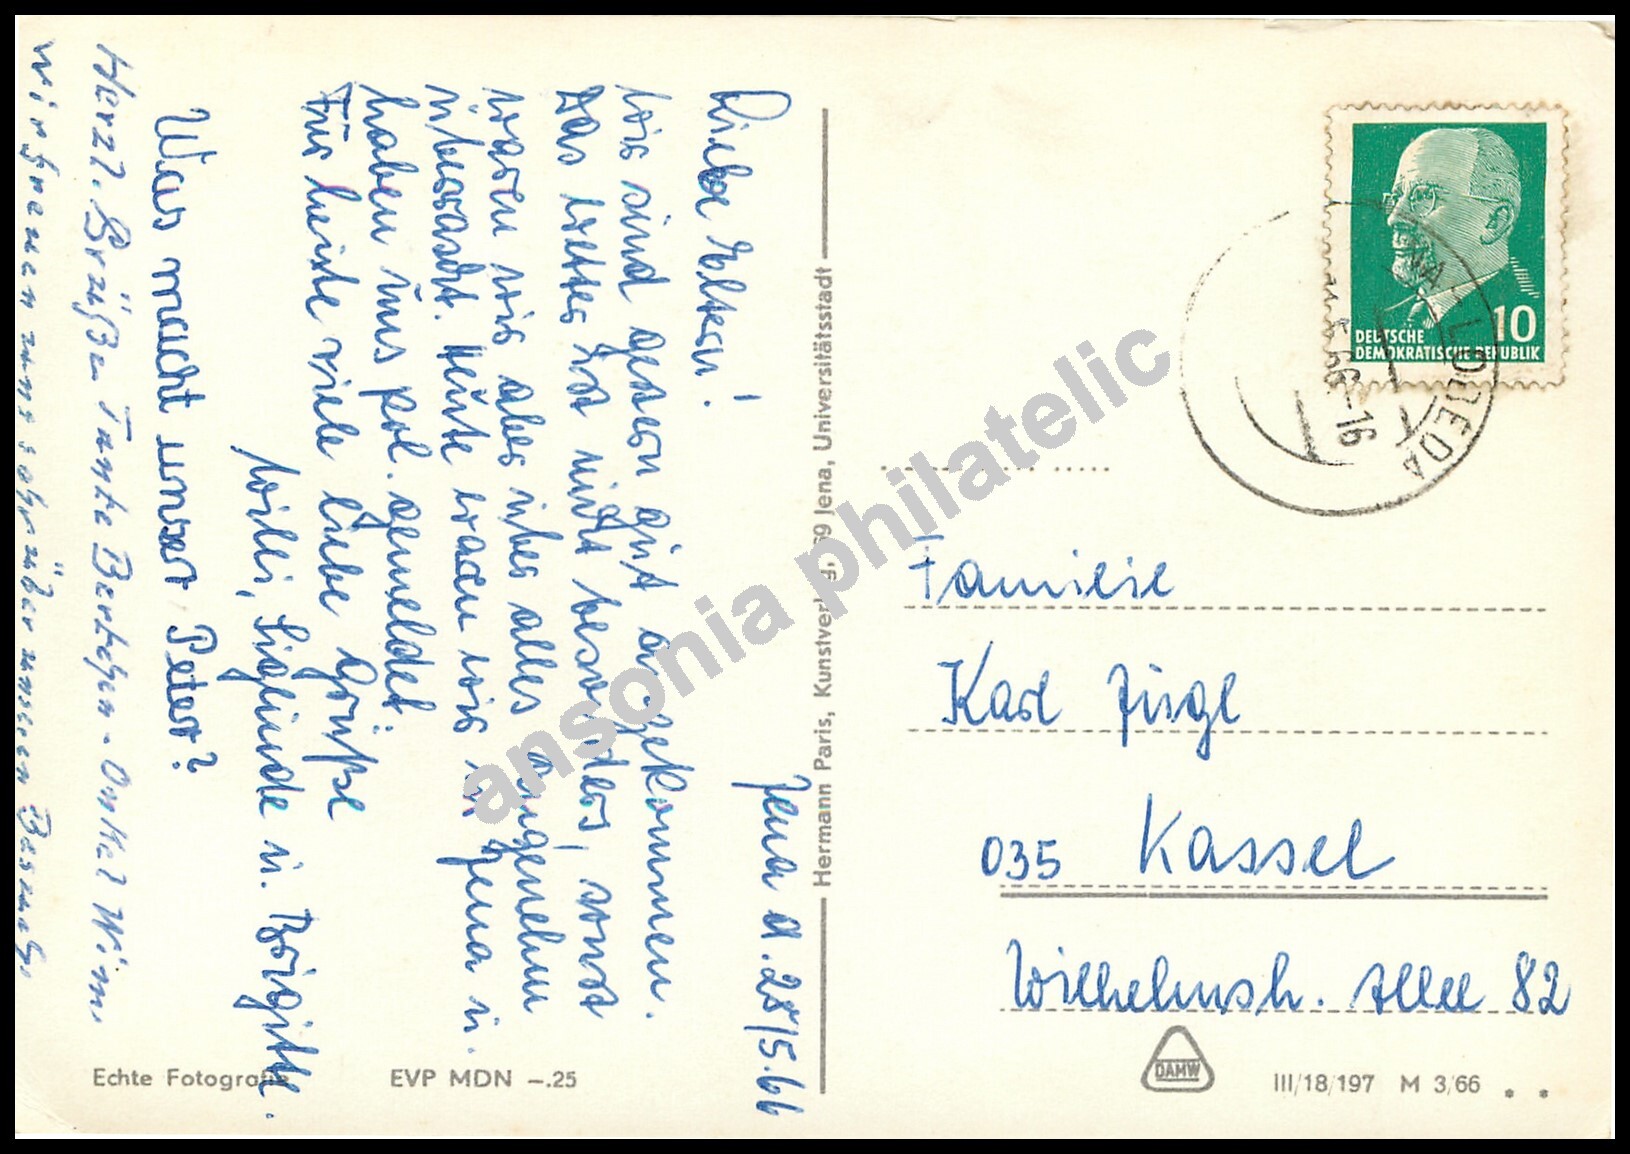 Jena d. 28/5.66
Liebe Eltern!
Wir sind gestern gut angekommen.
Das Wetter ist nicht besonders, sonst
waren wir aber über alles angenehm
überrascht. Heute waren wir in Jena u.
haben uns pol. gemeldet.
Für heute viele liebe Grüße
Willi, Sieglinde u. Brigitte.
Was macht unser Peter?
Herzl. Grüße Tante Bertchen - Onkel Wim.
wir freuen uns sehr über unseren Besuch.
Hermann Paris, Kunstverlag, 69 Jena, Universitätsstadt
Echte Fotografie
EVP MDN -.25
DEUTSCHE
DEMOKRATISCHE REPUBLIK
10
LOBEDA
66-16
Familie
Karl
035 Kassel
Wilhelmsh. Allee 82
DAMW
III/18/197 M 3/66
ansonia philatelic